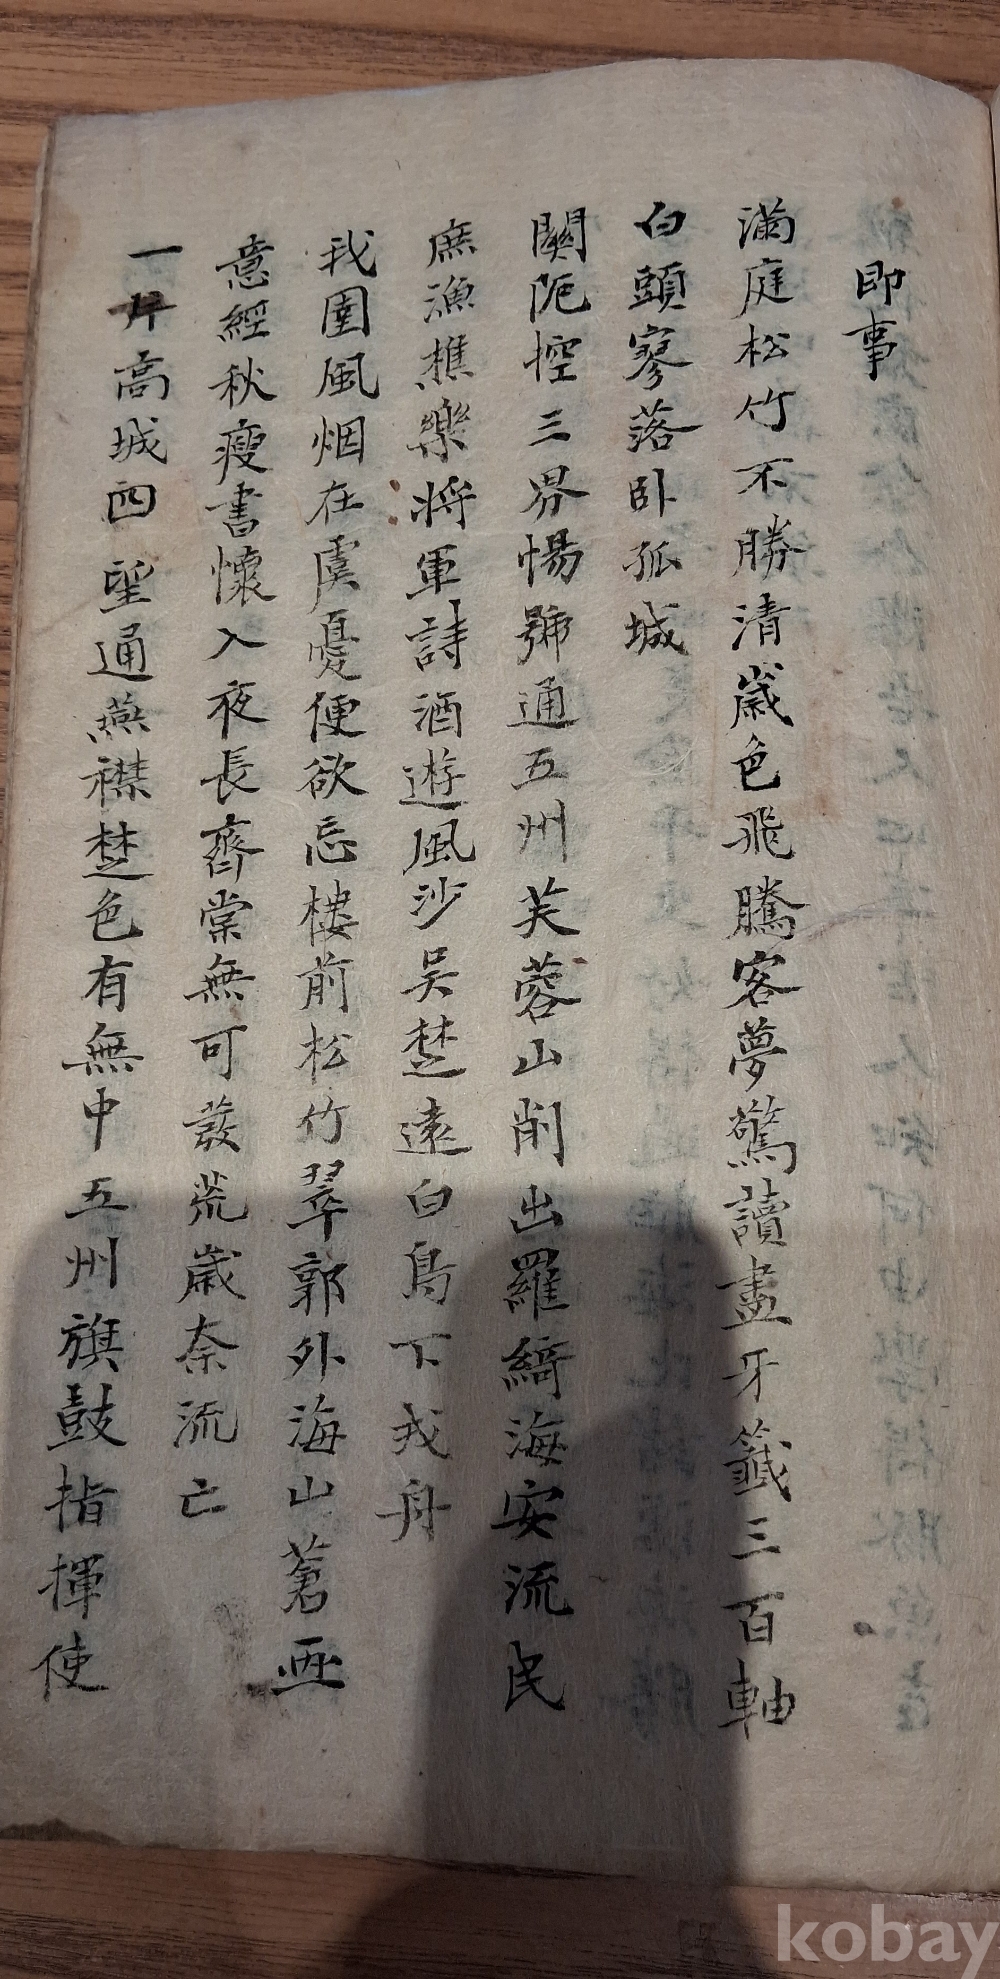 即事
滿庭松竹不勝清歲色飛騰客夢驚讀盡牙籤三百軸
白頭寥落卧孤城
關阨控三界惕號通五州芙蓉山削出羅綺海安流民
庶漁樵樂將軍詩酒遊風沙吴楚遠白鳥下戎舟
我圍風烟在虞憂便欲忘樓前松竹翠郭外海山蒼亟
意經秋瘦書懷入夜長齊棠無可裁荒歲奈流亡
一片高城四望通燕襟楚色有無中五州旗鼓指揮使
kobay